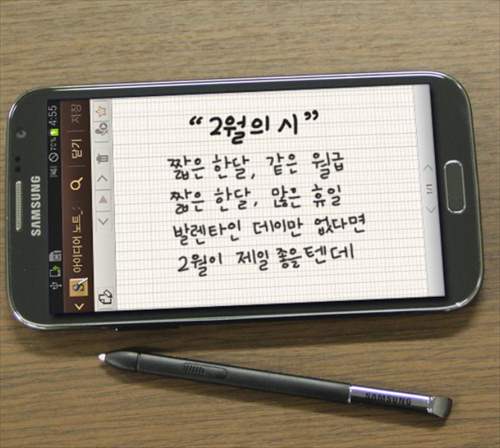 “2월의 시”
짧은 한달, 같은 월급
짧은 한달, 많은 휴일
발렌타인 데이만 없다면
2월이 제일 좋을텐데
SAMSUNG
4:55
70%
저장
닫기
아이디어 노트_
1/1
SAMSUNG